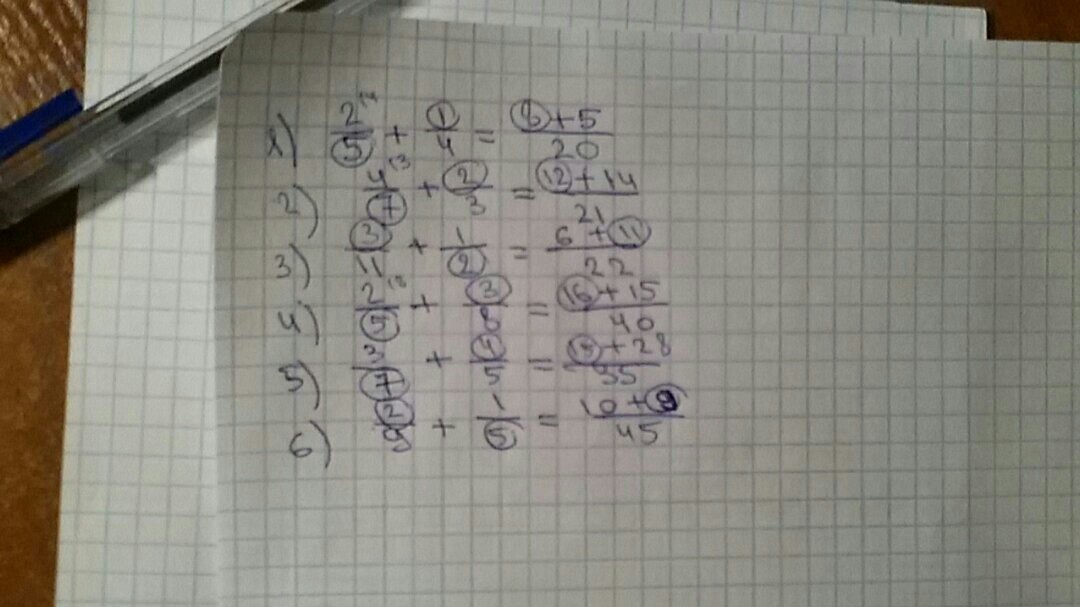 1) 2/5 + 1/4 = 8+5/20
2) 4/7 + 2/3 = 12+14/21
3) 3/11 + 1/2 = 6+11/22
4) 2/5 + 3/8 = 16+15/40
5) 3/7 + 4/5 = 15+28/35
6) 2/9 + 1/5 = 10+9/45